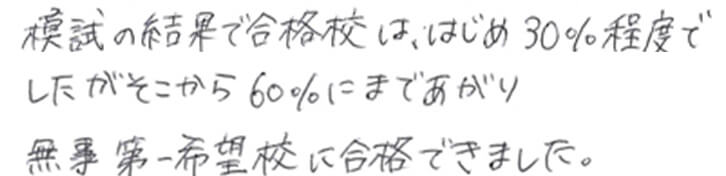 模試の結果で合格校は、はじめ30%程度で
したがそこから60%にまであがり
無事第一希望校に合格できました。